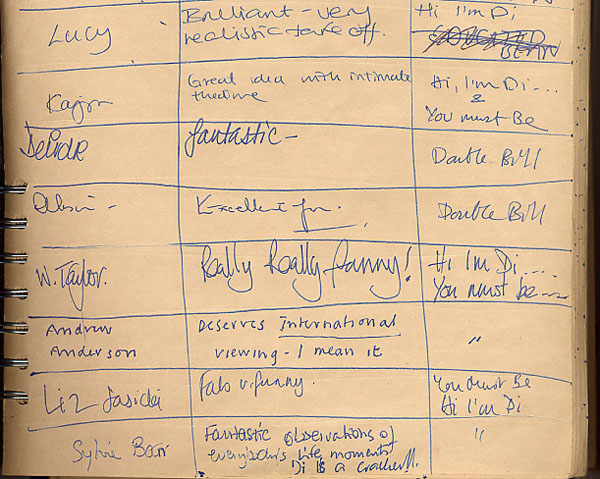 Lucy
Brilliant - very
realistic take off.
Hi I'm Di
Great idea with intimate
theatre
Hi, I'm Di...
&
You must Be
Deirdre
fantastic -
Double Bill
Excellent fun.
Double Bill
W. Taylor.
Really Really funny!
Hi I'm Di....
You must be----
Andrew
Anderson
Deserves International
viewing - I mean it
"
Liz
Fab v. funny.
You Must Be
Hi I'm Di
Sylvie Barr
Fantastic observations of
everybody's life moments
Di is a cracker!!.
"